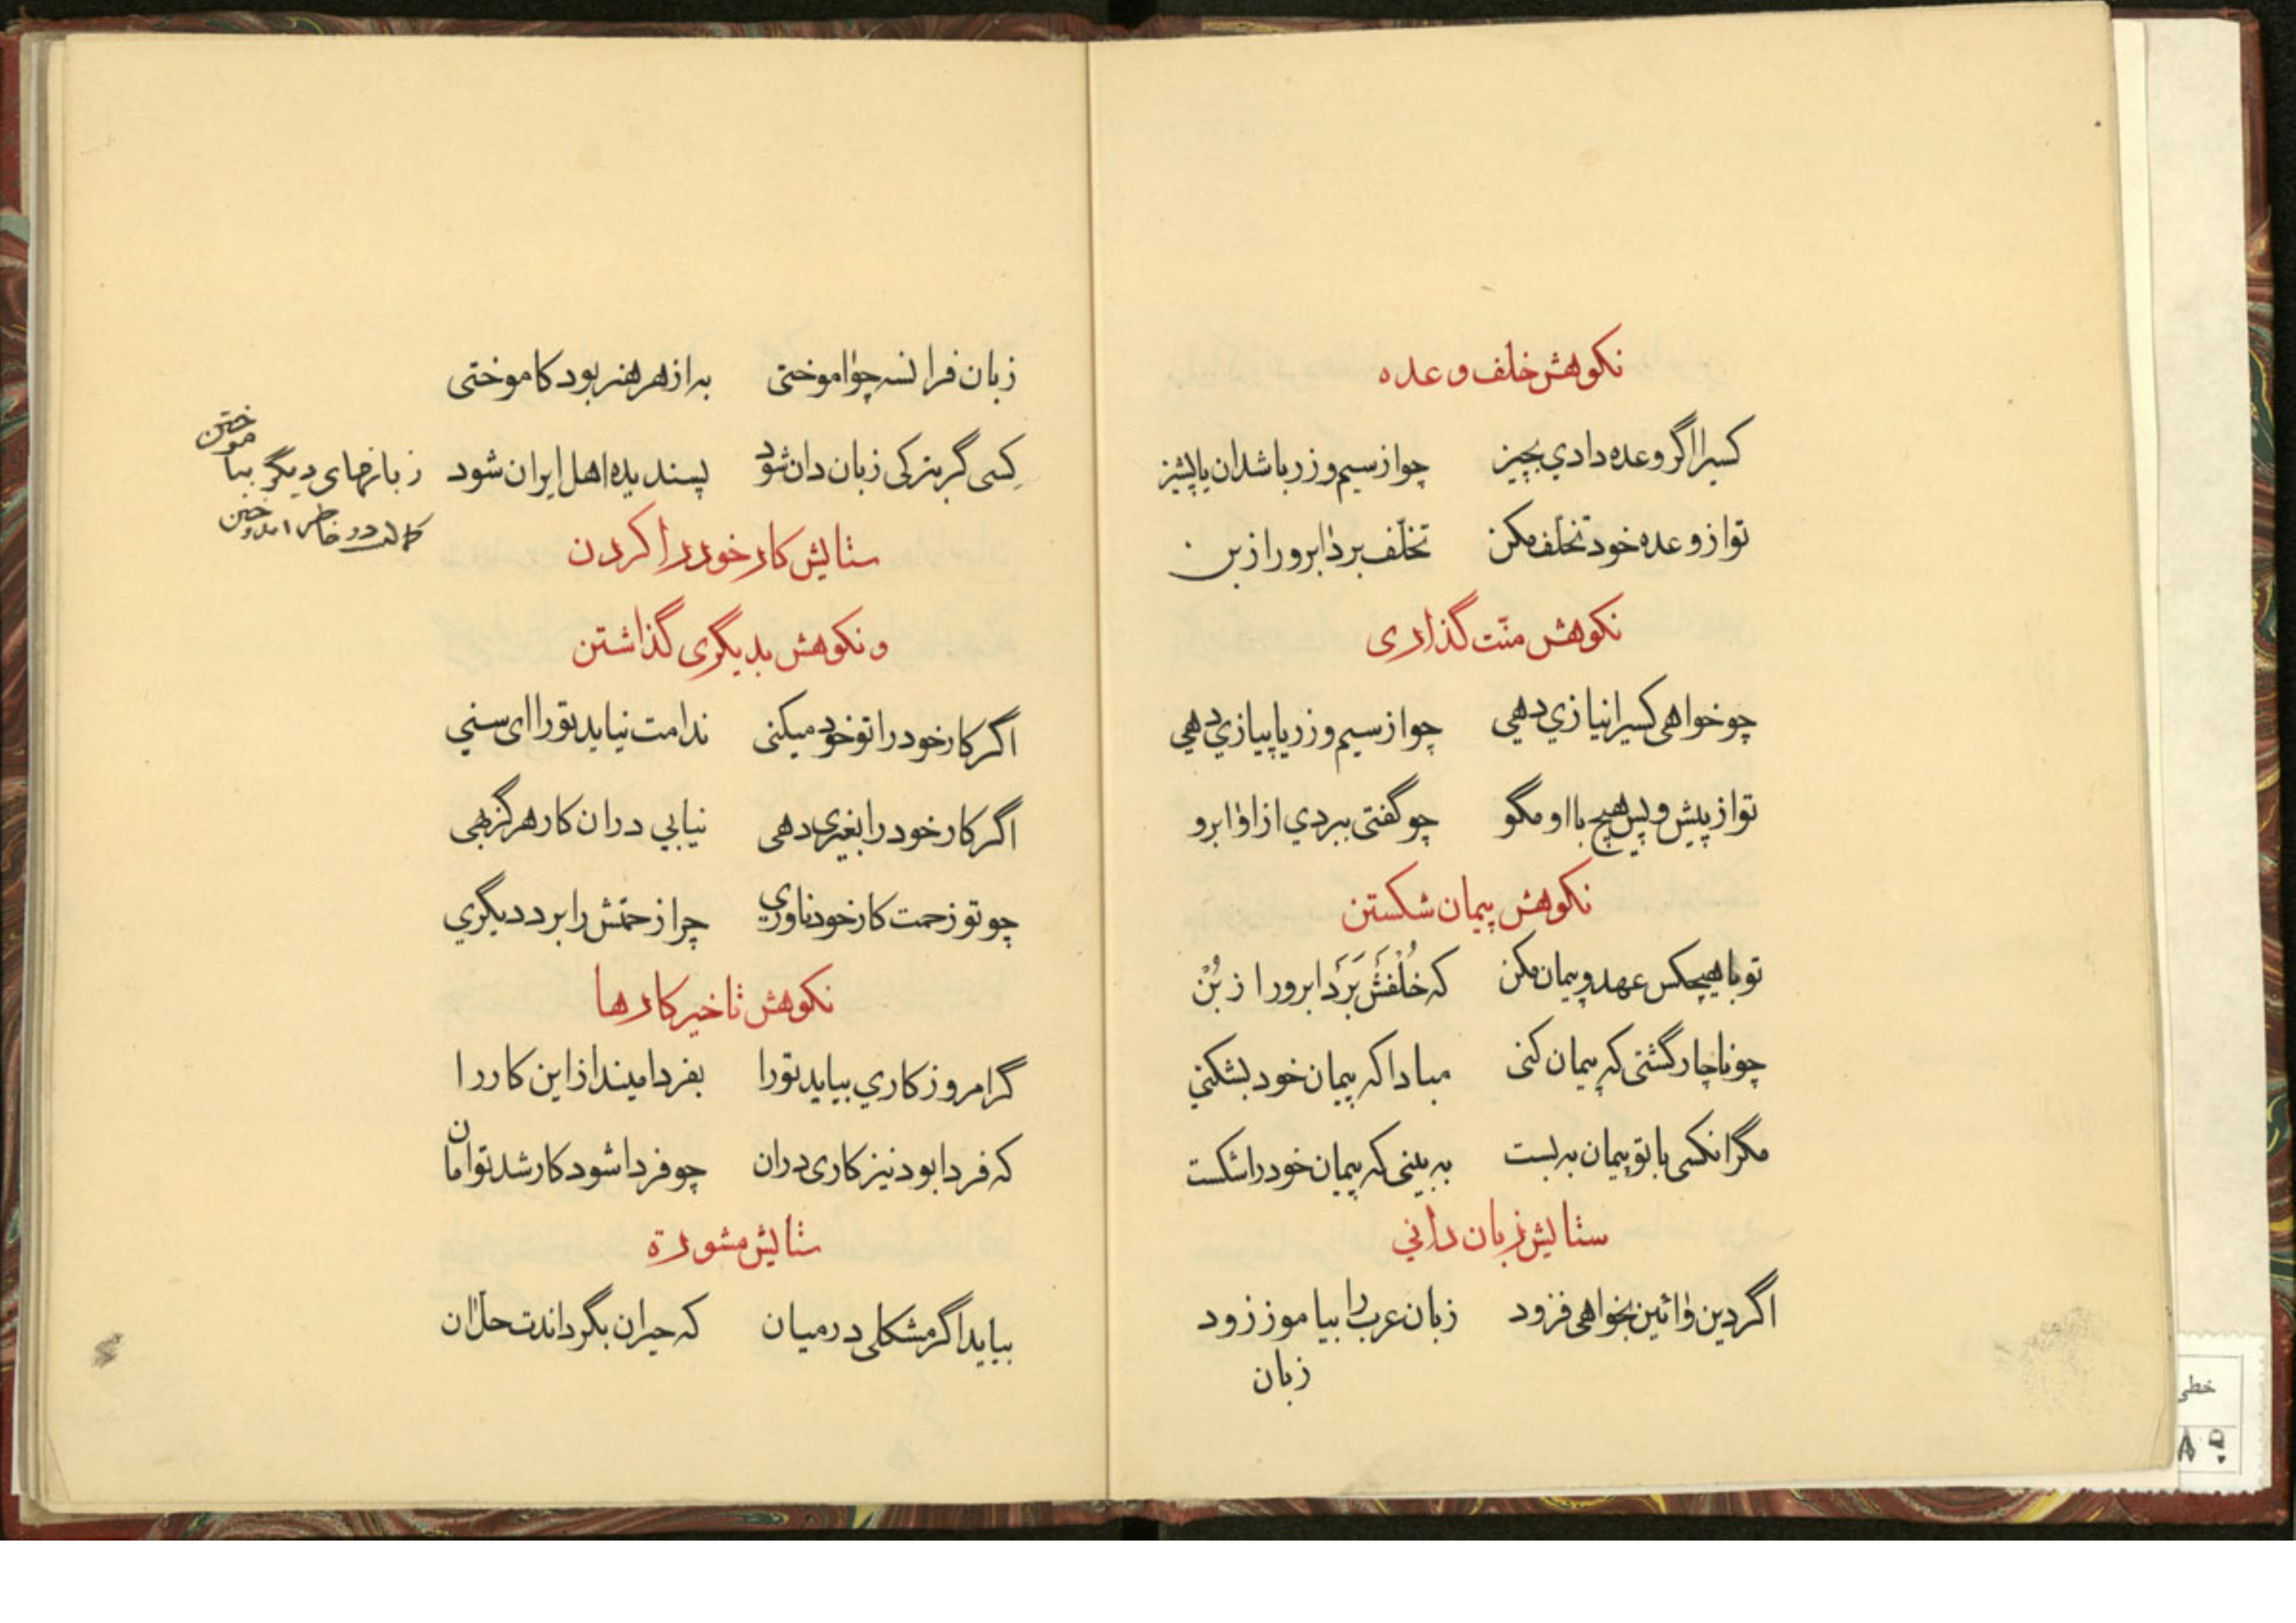 نکوهش خلف وعده
کسیرا اگر وعده دادي بچیز چو از سیم و زر باشد ان یا پشیز
تو از وعده خود تخلّف مکن تخلّف برد ابرو را ز بن
نکوهش منّت گذاری
چو خواهی کسیرا نیازي دهي چو از سیم و زر یا پیازي دهي
تو از پیش و پس هیچ با او مگو چو گفتی ببردي از او ابرو
نکوهش پیمان شکستن
تو با هیچکس عهد و پیمان مکن که خُلْفَشْ بَرَد ابرو را ز بُنْ
چو ناچار گشتی که پیمان کنی مبادا که پیمان خود بشکنيٖ
مگر انکسی با تو پیمان به بست به بینی که پیمان خود را شکست
ستایش زبان داني
اگر دین و ائین بخواهی فزود زبان عرب را بیاموز زود
زبان
زبان فرانسه چو اموختی به از هر هنر بود کاموختی
کسی گر بترکی زبان دان شود پسندیده اهل ایران شود
زبانهای دیگر بیاموختن
کمالست در خاطر اندوختن
ستایش کار خود را کردن
و نکوهش بدیگری گذاشتن
اگر کار خود را تو خود میکنی ندامت نیاید تو را ای سني
اگر کار خود را بغیری دهی نیابي در ان کار هرگز بهی
چو تو زحمت کار خود ناوري چرا زحمتش را برد دیگري
نکوهش تاخیر کارها
گر امروز کاري بیاید تو را بفردا میندار این کار را
که فردا بود نیز کاری در ان چو فردا شود کار شد توامان
ستایش مشورة
بیاید اگر مشکلی در میان که حیران بگرداندت حلّ ان
خطی